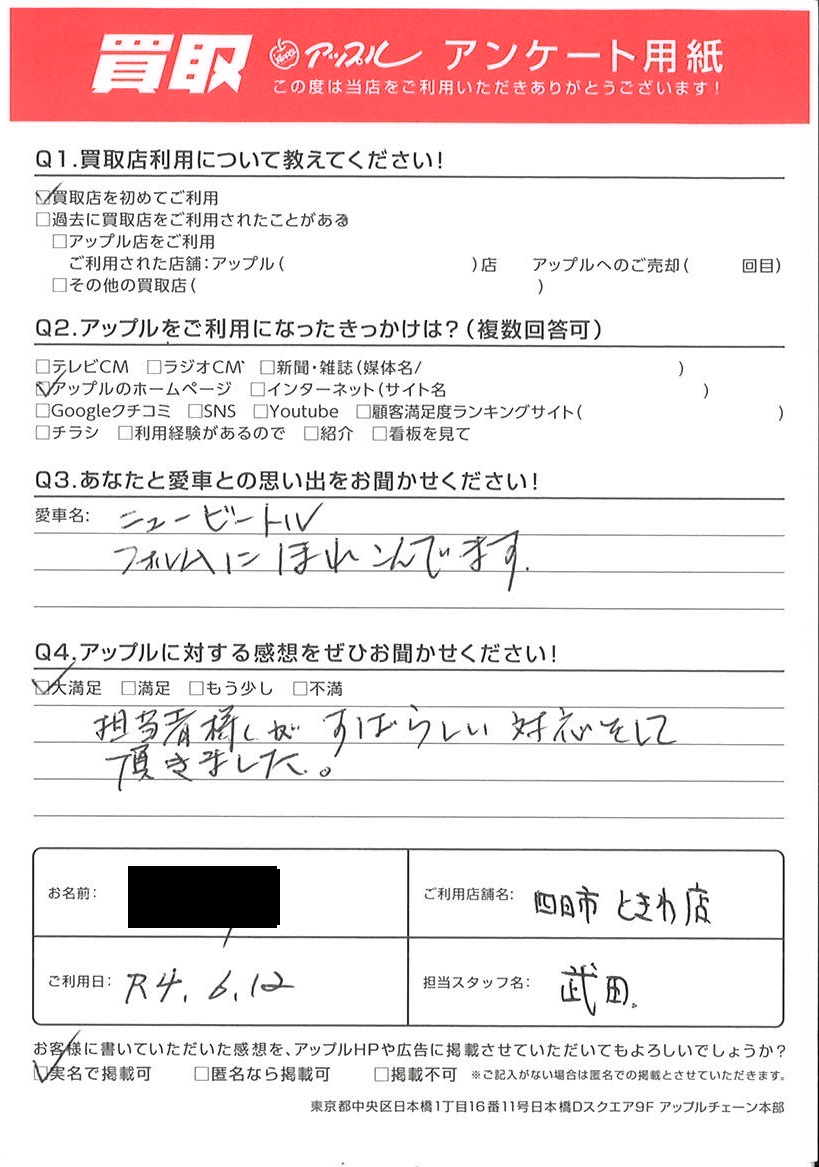 買取 アップル アンケート用紙
この度は当店をご利用いただきありがとうございます!
Q1.買取店利用について教えてください!
☑買取店を初めてご利用
□過去に買取店をご利用されたことがある
□アップル店をご利用
ご利用された店舗:アップル( )店 アップルへのご売却( 回目)
□その他の買取店( )
Q2.アップルをご利用になったきっかけは?(複数回答可)
□テレビCM □ラジオCM □新聞・雑誌(媒体名/ )
☑アップルのホームページ □インターネット(サイト名 )
□Googleクチコミ □SNS □Youtube □顧客満足度ランキングサイト( )
□チラシ □利用経験があるので □紹介 □看板を見て
Q3.あなたと愛車との思い出をお聞かせください!
愛車名: ニュービートル
フォルムにほれこんでます.
Q4.アップルに対する感想をぜひお聞かせください!
☑大満足 □満足 □もう少し □不満
担当者様が すばらしい 対応をして
頂きました。
お名前: ご利用店舗名: 四日市 ときわ店
ご利用日: R4.6.12 担当スタッフ名: 武田.
お客様に書いていただいた感想を、アップルHPや広告に掲載させていただいてもよろしいでしょうか?
☑実名で掲載可 □匿名なら掲載可 □掲載不可 ※ご記入がない場合は匿名での掲載とさせていただきます。
東京都中央区日本橋1丁目16番11号日本橋Dスクエア9F アップルチェーン本部